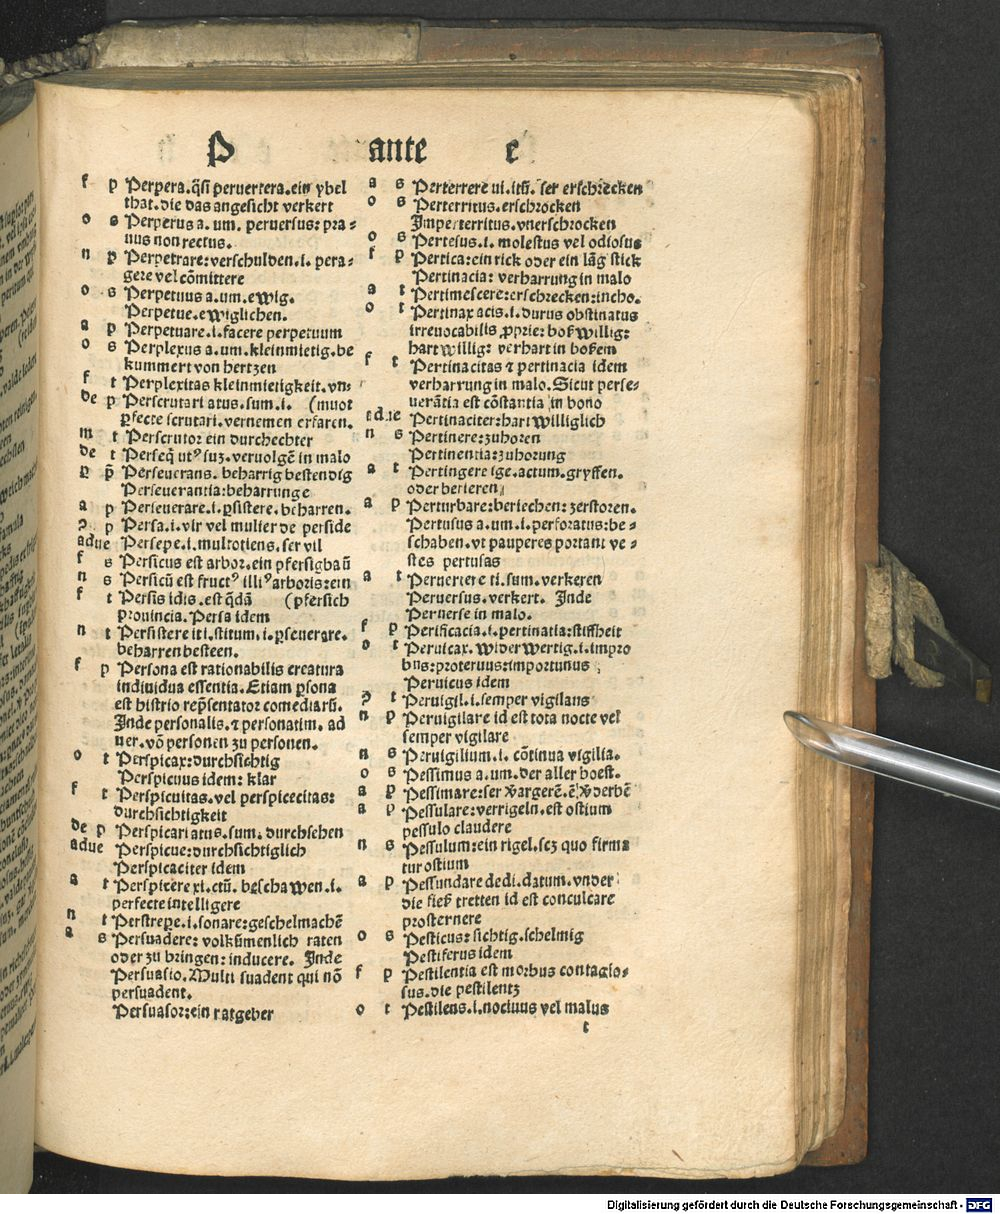 P ante e
f p Perpera.q̃si peruertera.ein ybel
that.die das angesicht verkert
o s Perperus a. um. peruersus: pra=
uus non rectus.
n p Perpetrare:verschulden.i. pera=
gere vel cõmittere
o s Perpetuus a.um.ewig.
Perpetue.ewiglichen.
a p Perpetuare.i.facere perpetuum
o s Perplexus a.um.kleinmietig.be
kummert von hertzen
f t Perplexitas kleinmietigkeit.vn=
de p Perscrutari atus.sum.i. (muot
ꝑfecte scrutari.vernemen erfaren.
m t Perscrutor ein durchechter
de t Perseq̃ utꝰ suz.veruolgẽ in malo
Perseuerans.beharrig bestendig
Perseuerantia:beharrunge
a p Perseuerare.i.ꝑsistere.beharren.
p Persa.i.vir vel mulier de perside
adue Persepe.i.multotiens.ser vil
f s Persicus est arbor.ein pfersigbaũ
n s Persicũ est fructꝰ illiꝰ arboris:ein
f t Persis idis.est q̃dã (pfersich
prouincia.Persa idem
n t Persistere iti.stitum.i.ꝑseuerare.
beharren besteen.
f p Persona est rationabilis creatura
indiuidua essentia.Etiam ꝑsona
est histrio rep̃sentator comediarũ.
Inde personalis.⁊ personatim.ad
uer.võ personen zu personen.
o t Perspicax:durchsichtig
Perspicuus idem: klar
f t Perspicuitas.vel perspicecitas:
durchsichtigkeit
de p Perspicari atus.sum.durchsehen
adue Perspicue:durchsichtiglich
Perspicaciter idem
a t Perspicere xi.ctũ.beschawen.i.
perfecte intelligere
n t Perstrepe.i.sonare:geschelmachẽ
a s Persuadere: volkũmenlich raten
oder zu bringen:inducere. Inde
Persuasio.Multi suadent qui nõ
persuadent.
Persuasor:ein ratgeber
a s Perterrere ui.itũ. ser erschrecken
o s Perterritus.erschrocken
Imperterritus.vnerschrocken
o s Pertesus.i. molestus vel odiosus
f p Pertica:ein rick oder ein lãg stick
Pertinacia: verharrung in malo
a t Pertimescere:erschrecken:incho.
o t Pertinax acis.i.durus obstinatus
irreuocabilis ꝓprie: boßwillig:
hartwillig: verhart in boßem
f t Pertinacitas ⁊ pertinacia idem
verharrung in malo.Sicut perse=
uerãtia est cõstantia in bono
adue Pertinaciter:hartwilliglich
n s Pertinere:zuhoren
Pertinentia:zuhorung
a t Pertingere ige.actum.gryffen.
oder berieren
a p Perturbare:beriechen:zerstoren.
Pertusus a.um.i.perforatus:be=
schaben.vt pauperes portant ve=
stes pertusas
a t Peruertere ti.sum.verkeren
Peruersus.verkert. Inde
Peruerse in malo.
f p Peruicacia.i.pertinatia:stiffheit
o t Peruicax.widerwertig.i.impro
bus:proteruus:importunus
Peruicus idem
t Peruigil.i.semper vigilans
n p Peruigilare id est tota nocte vel
semper vigilare
n s Peruigilium.i. cõtinua vigilia.
o s Pessimus a.um.der aller boest.
a p Pessimare:ser
a p Pessulare:verrigeln.est ostium
pessulo claudere
n s Pessulum:ein rigel.scz quo firma
tur ostium
a p Pessundare dedi.datum.vnder
die fieß tretten id est conculcare
prosternere
o s Pesticus: sichtig.schelmig
Pestiferus idem
f p Pestilentia est morbus contagio=
sus.die pestilentz
o t Pestilens.i.nociuus vel malus
t
Digitalisierung gefördert durch die Deutsche Forschungsgemeinschaft - DFG